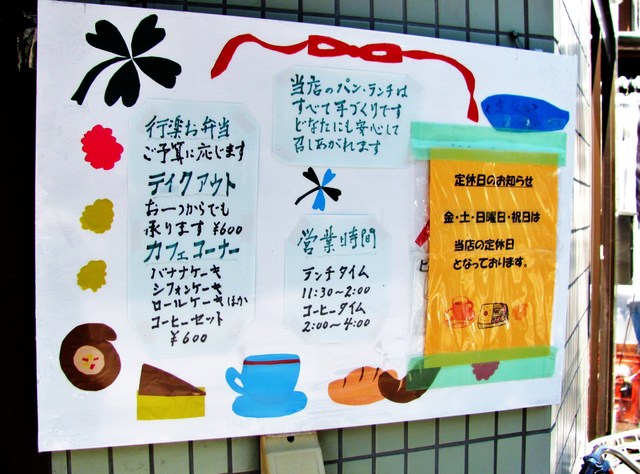 行楽お弁当
ご予算に応じます
テイクアウト
お一つからでも
承ります ¥600
カフェコーナー
バナナケーキ
シフォンケーキ
ロールケーキほか
コーヒーセット
¥600
当店のパン・ランチは
すべて手づくりです
どなたにも安心して
召しあがれます
営業時間
ランチタイム
11:30~2:00
コーヒータイム
2:00~4:00
定休日のお知らせ
金・土・日曜日・祝日は
当店の定休日
となっております。